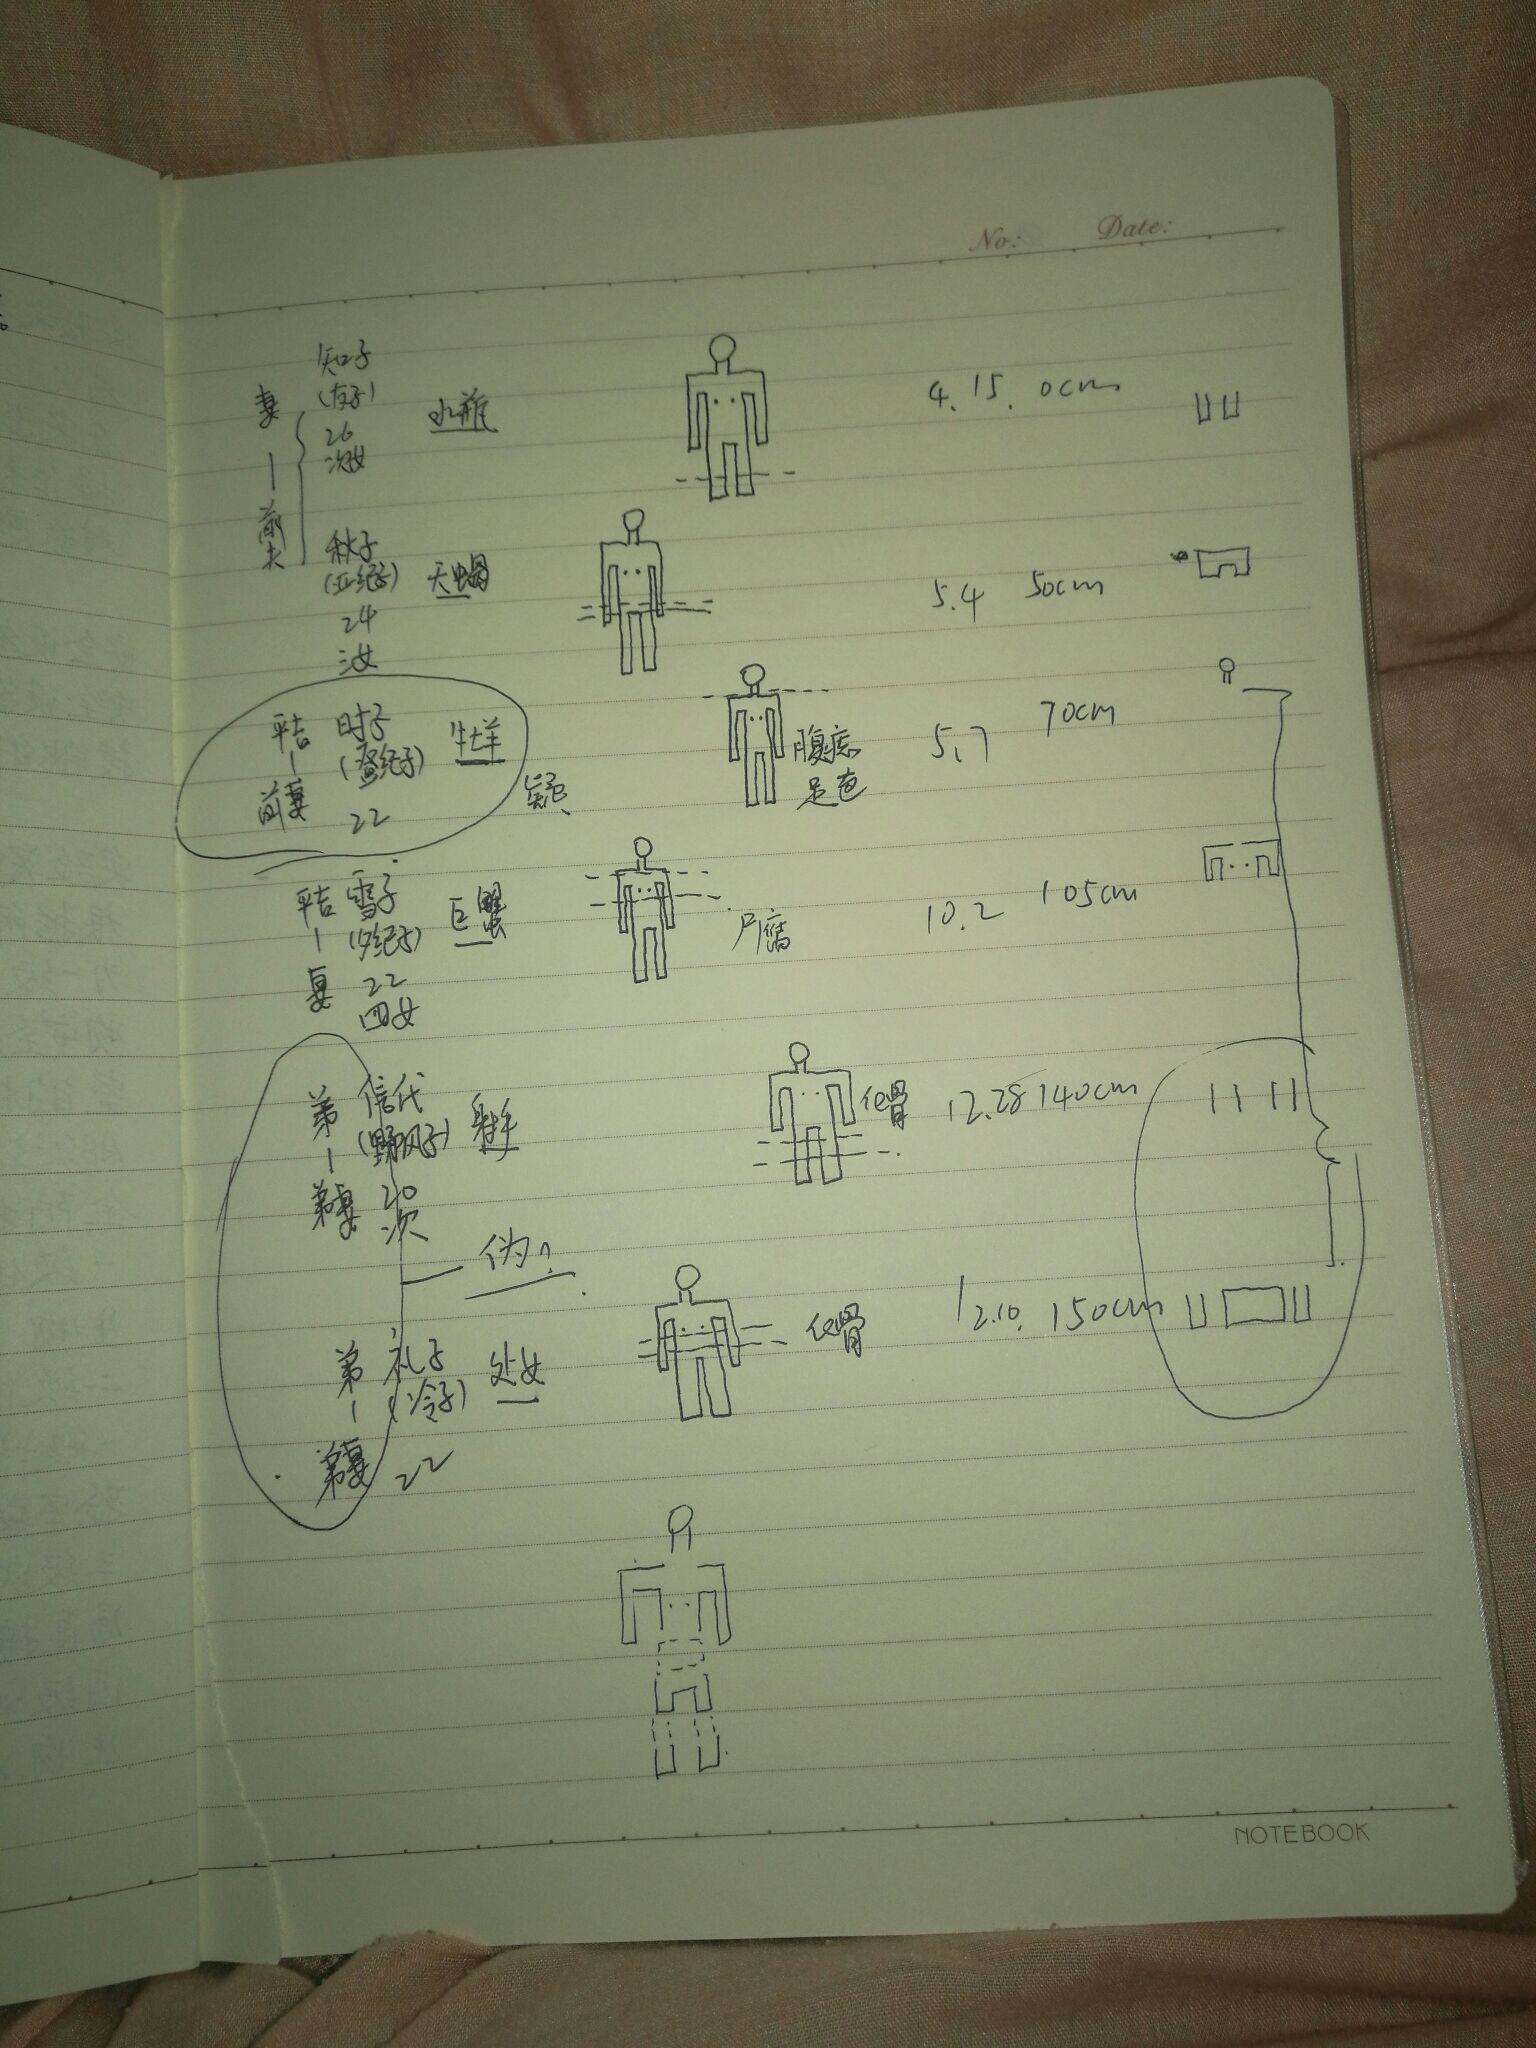 No: Date:
妻
|
前夫
知子
(友子)
26
次女
水瓶
4.15. 0cm
秋子
(亚纪子)
24
三女
天蝎
5.4 50cm
平吉
|
前妻
时子
(登纪子)
22
牡羊
疑、
腹痣
足苍
5.7 70cm
平吉
|
妻
雪子
(夕纪子)
22
四女
巨蟹
尸腐
10.2 105cm
弟
|
弟妻
信代
(野风子)
20
次
射手
化骨
12.28 140cm
伪?
弟
|
弟妻
礼子
(冷子)
22
处女
化骨
12.10. 150cm
NOTEBOOK